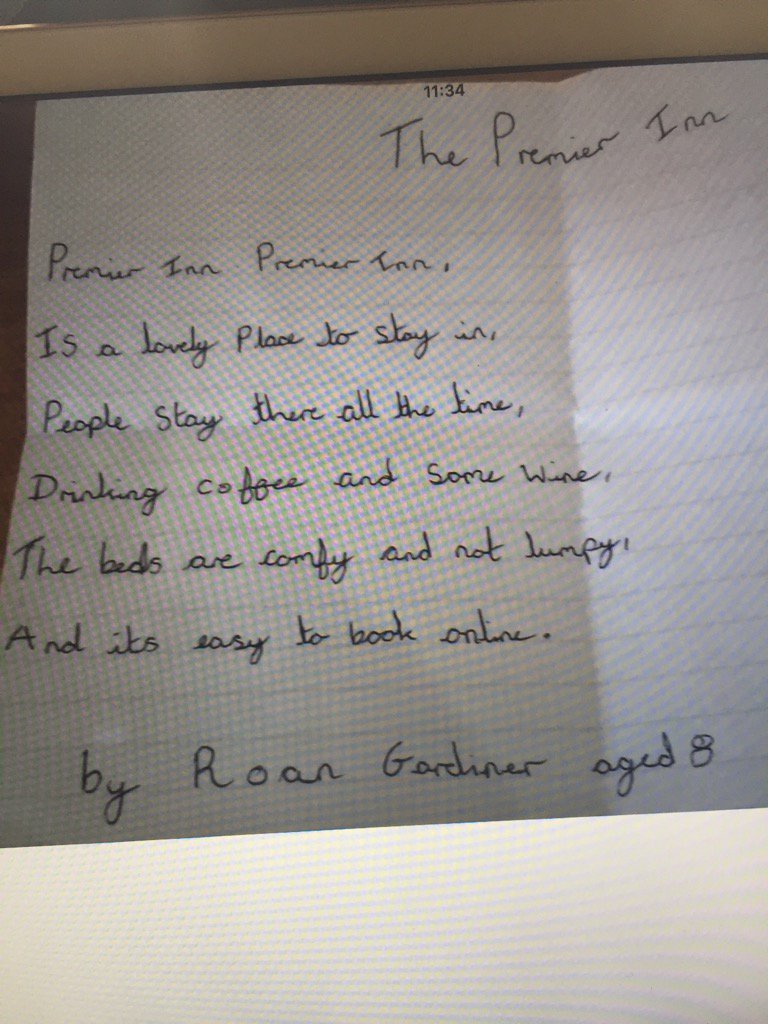 11:34
The Premier Inn
Premier Inn Premier Inn,
Is a lovely Place to stay in,
People Stay there all the time,
Drinking coffee and Some Wine,
The beds are comfy and not lumpy,
And its easy to book online.
by Roan Gardiner aged 8